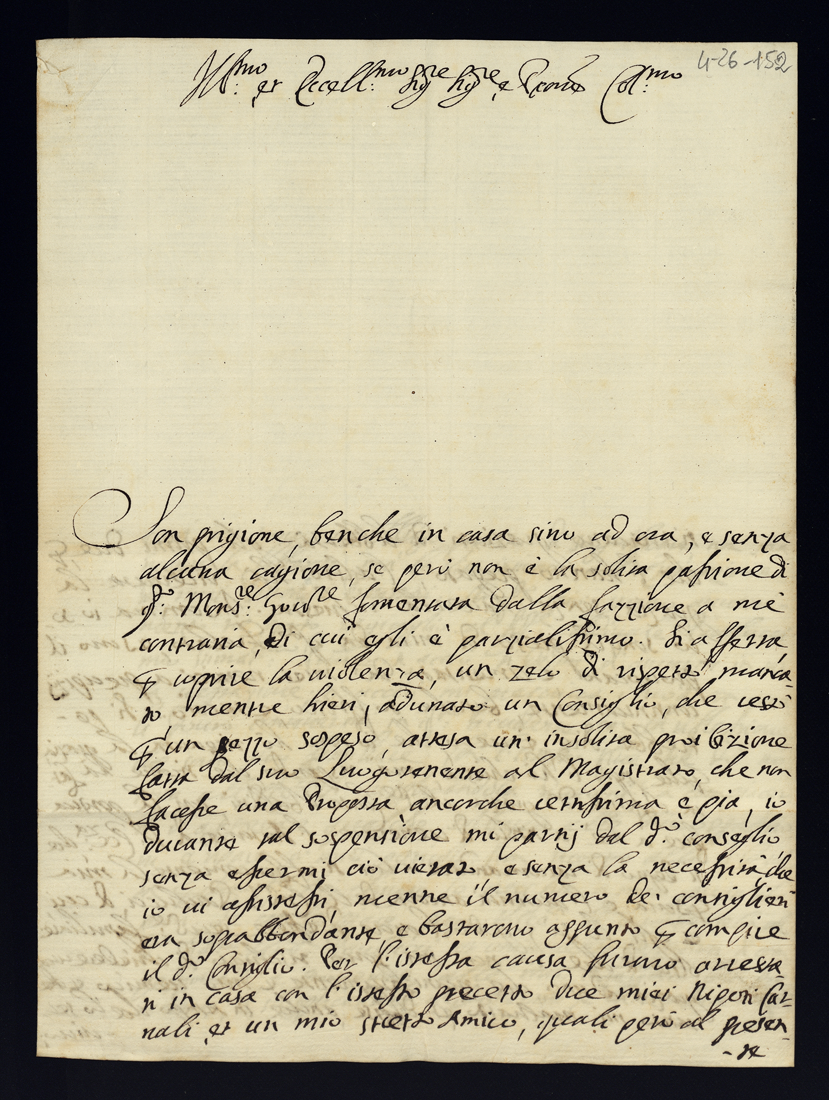 4-26-152
Ill:mo et Eccell:mo Sig:re Sig:re e Prone Col:mo
Son prigione, benche in casa sino ad ora, e senza
alcuna cagione, se però non è la solita passione di
q:o Mons:re Gov:re fomentata dalla fazzione a me
contraria, di cui egli è parzialissimo. Si afferra,
p coprire la violenza, un zelo di rispetto manca-
to mentre hieri, adunato un Consiglio, che restò
p un pezzo sospeso, attesa un' insolita proibizione
fatta dal suo Luogotenente al Magistrato, che non
facesse una Proposta ancorche certissima e pia, io
durante tal sospensione mi partij dal d:o conseglio
senza essermi ciò vietato e senza la necessità che
io vi assistessi, mentre il numero de' consiglieri
era soprabbondante, e bastarono appunto p compire
il d:o Consiglio. Per l'istessa causa furono arresta-
ti in casa con l'istesso precetto due miei Nipoti Car-
nali, et un mio stretto Amico, quali però al presen-
-te